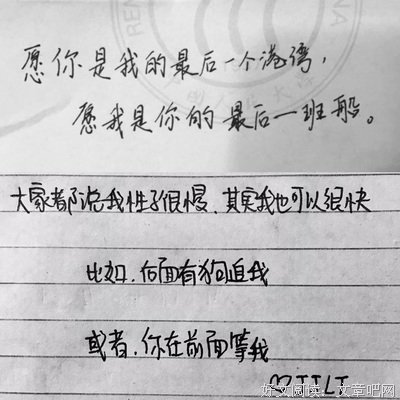 愿你是我的最后一个港湾，
愿我是你的最后一班船。
大家都说我性子很慢,其实我也可以很快
比如,后面有狗追我
或者,你在前面等我
好文阅读：文章吧网